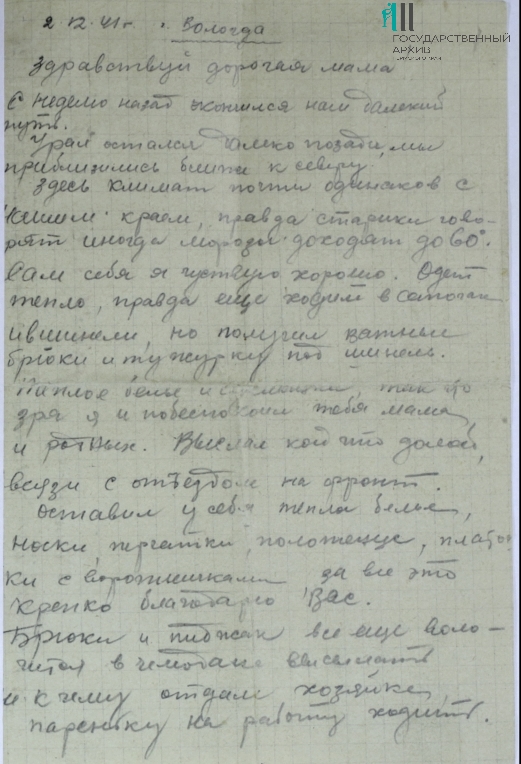 ГОСУДАРСТВЕННЫЙ
АРХИВ
2 12 41 г. г. Вологда
Здравствуй дорогая мама
С неделю назад окончился наш далекий
путь.
Урал остался далеко позади, мы
приблизились ближе к северу.
Здесь климат почти одинаков с
нашим краем, правда старики гово-
рят иногда морозы доходят до 60°.
Сам себя я чувствую хорошо. Одет
тепло, правда еще ходим в сапогах
и в шинели, но получил ватные
брюки и тужурку под шинель.
Теплое белье и так что
зря я и побеспокоил тебя мама
и родных. Выслал кой что домой,
всвязи с отъездом на фронт.
Оставил у себя тепло белье,
носки, перчатки, полотенце, плато
ки с воротничками за все это
крепко благодарю Вас.
Брюки и пиджак все еще воло-
чится в чемодане высылать
не к чему отдам хозяйке,
пареньку на работу ходить.